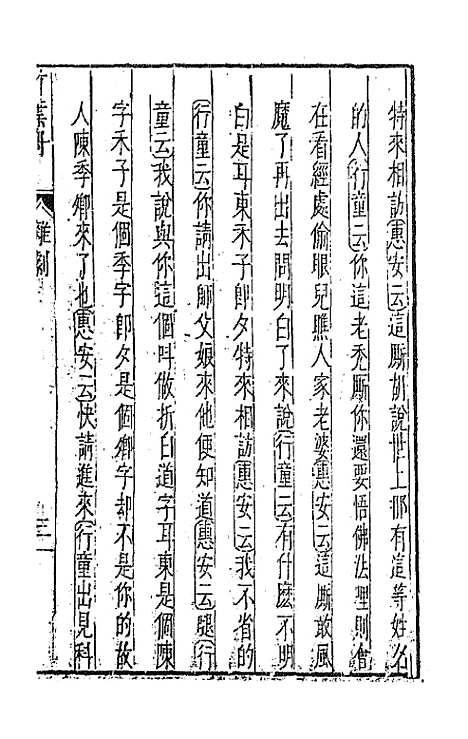 特來相訪惠安云這厮胡說世上那有這等姓名
的人行童云你這老禿厮你還要悟佛法理則會
在看經處偷眼兒瞧人家老婆惠安云這厮敢風
魔了再出去問明白了來說行童云有什麽不明
白是耳東禾子即夕特來相訪惠安云我不省的
行童云你請出師父娘來他便知道惠安云𡱰行
童云我說與你這個呌做折白道字耳東是個陳
字禾子是個季字即夕是個卿字却不是你的故
人陳季卿來了也惠安云快請進來行童出見科
竹葉舟 雜劇 三